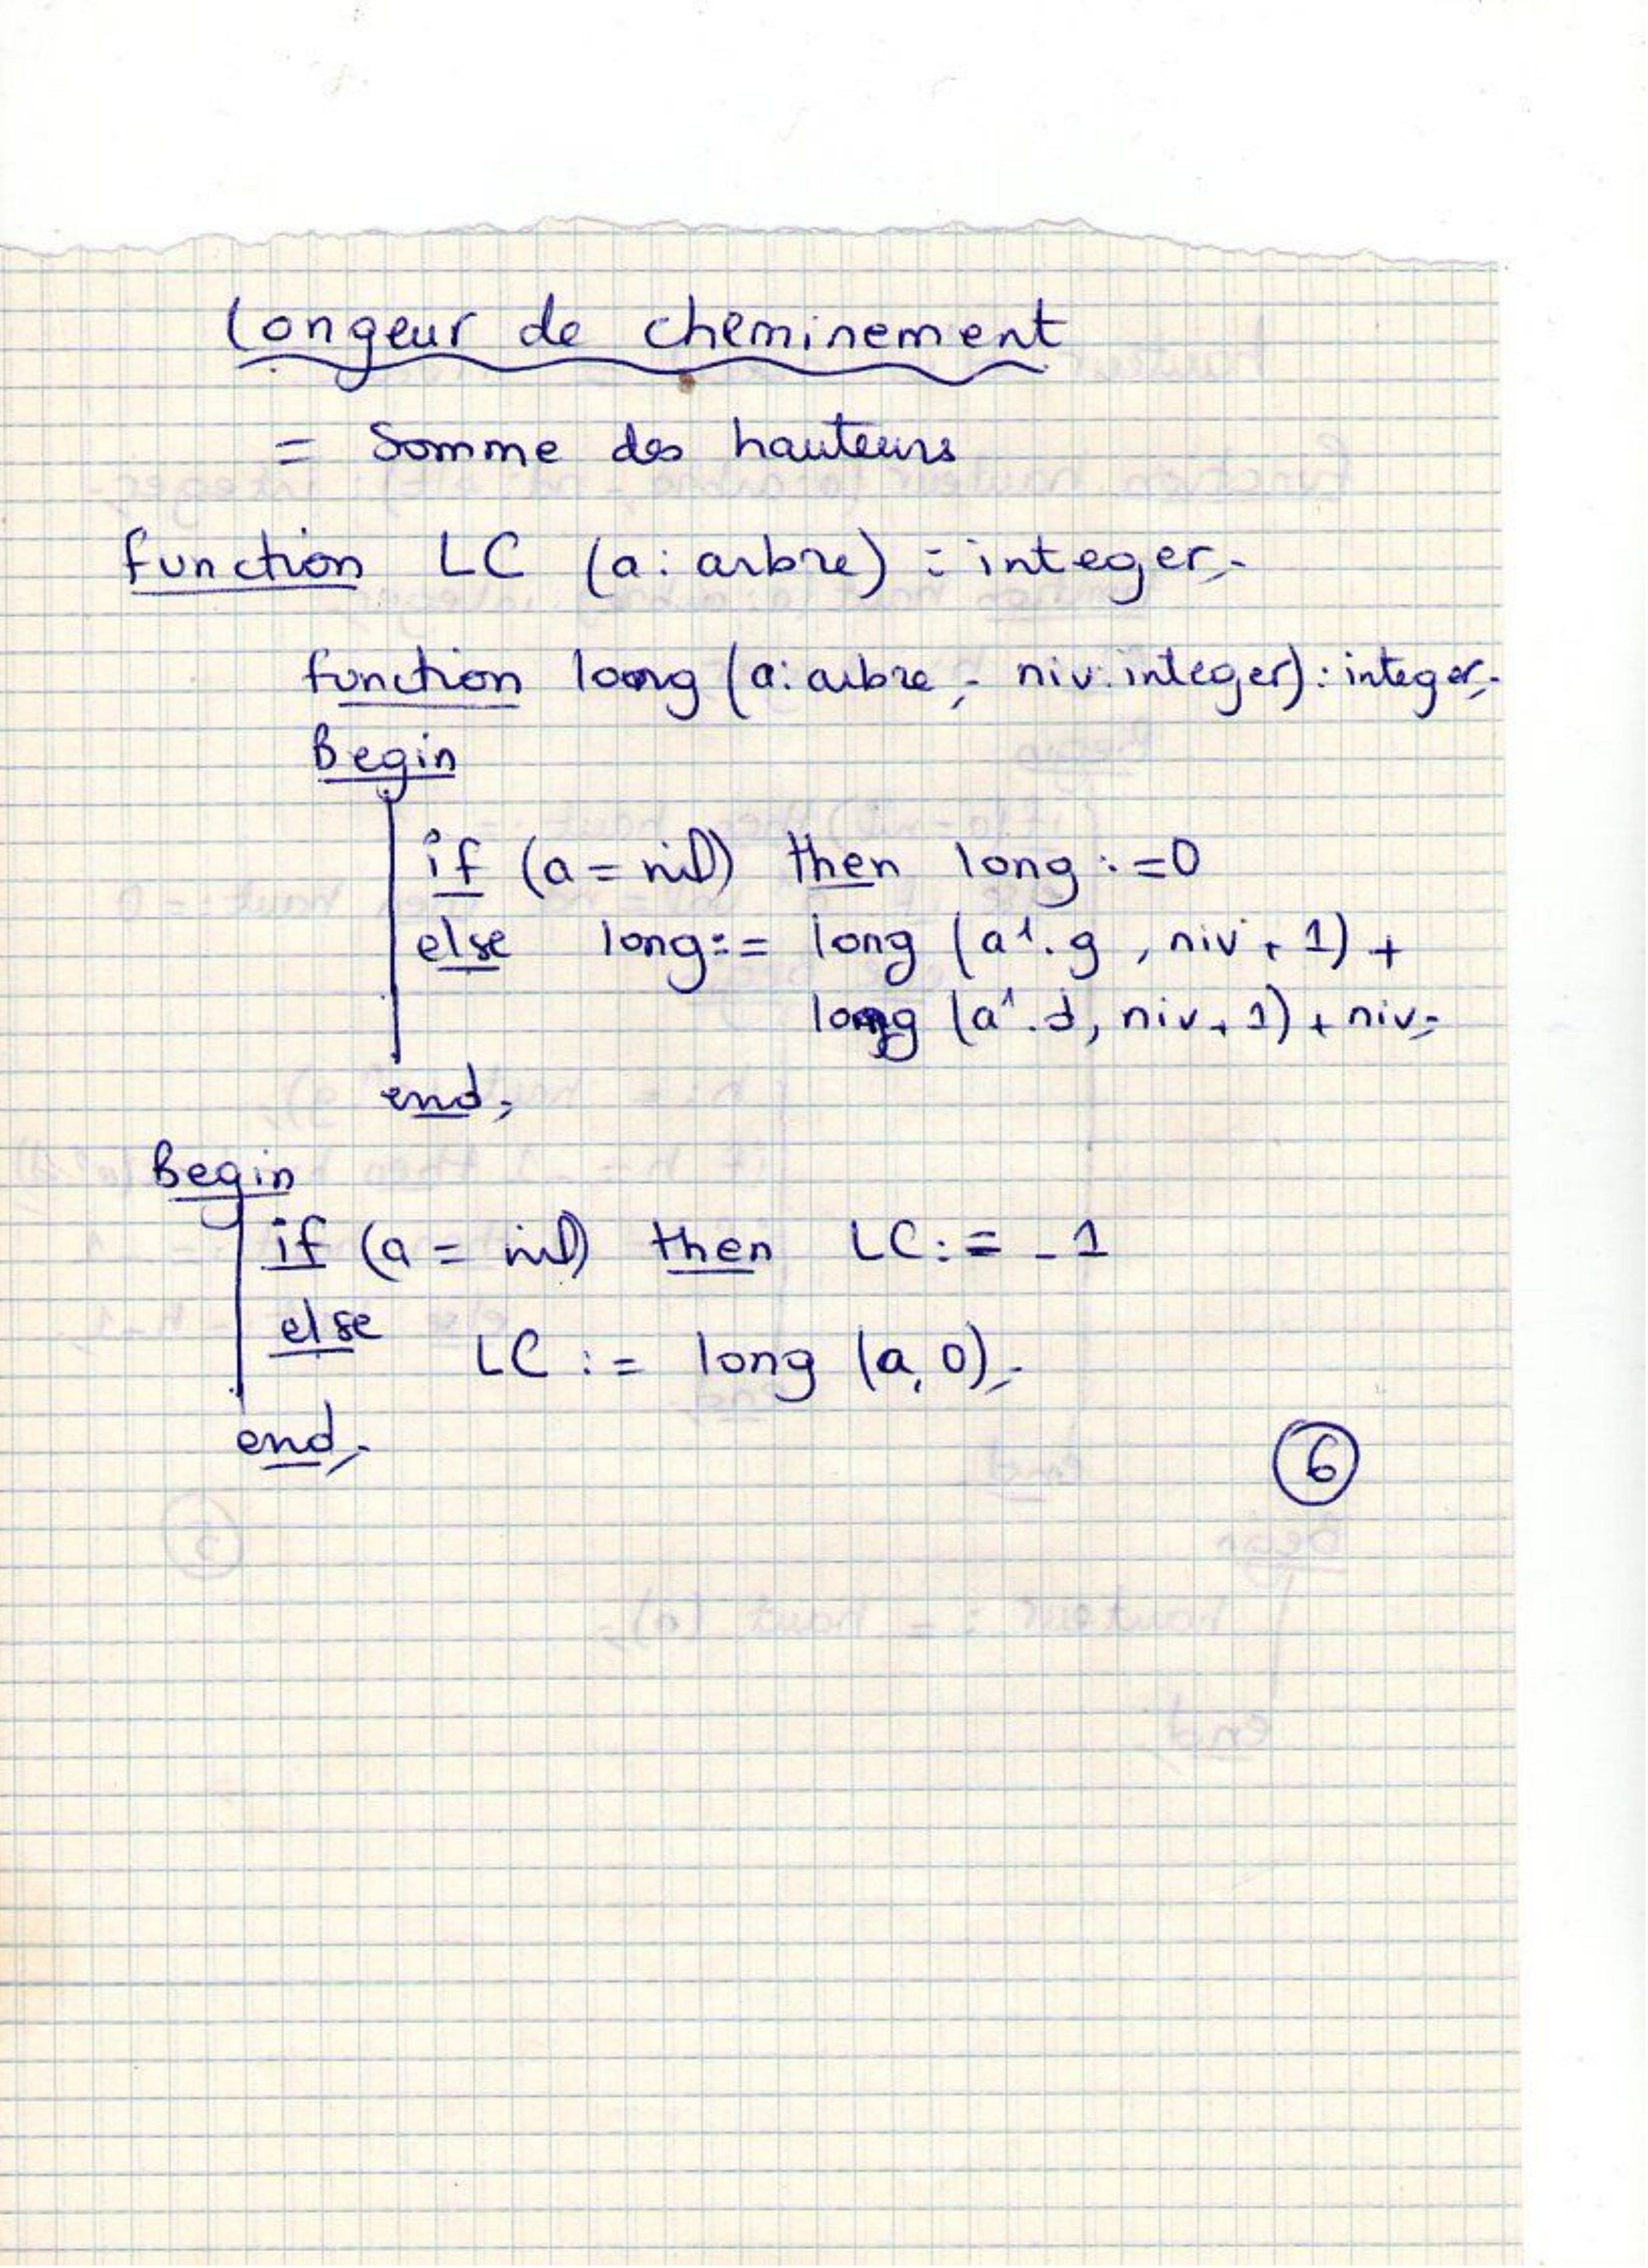 Longeur de cheminement
= Somme des hauteurs
function LC (a: arbre) : integer;
function long (a: arbre; niv: integer): integer;
Begin
if (a = nil) then long := 0
else long := long (a↑.g, niv + 1) +
long (a↑.d, niv + 1) + niv;
end;
Begin
if (a = nil) then LC := -1
else
LC := long (a, 0);
end;
6